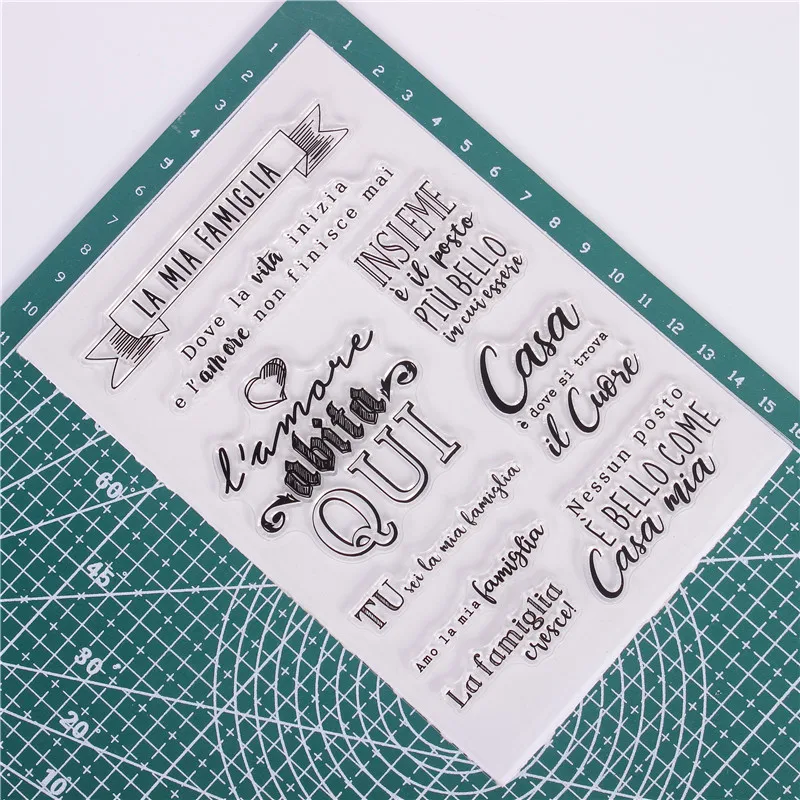 LA MIA FAMIGLIA
Dove la vita inizia
e l'amore non finisce mai
l'amore
abita
QUI
INSIEME
è il posto
PIÙ BELLO
in cui essere
Casa
è dove si trova
il Cuore
Nessun posto
È BELLO COME
Casa mia
TU sei la mia famiglia
Amo la mia famiglia
La famiglia
cresce!
1 2 3 4 5 6 7 8 9 10 11
1 2 3 4 5 6 7 8 9 10 11 12 13 14 15 16
60
45
30
20
10